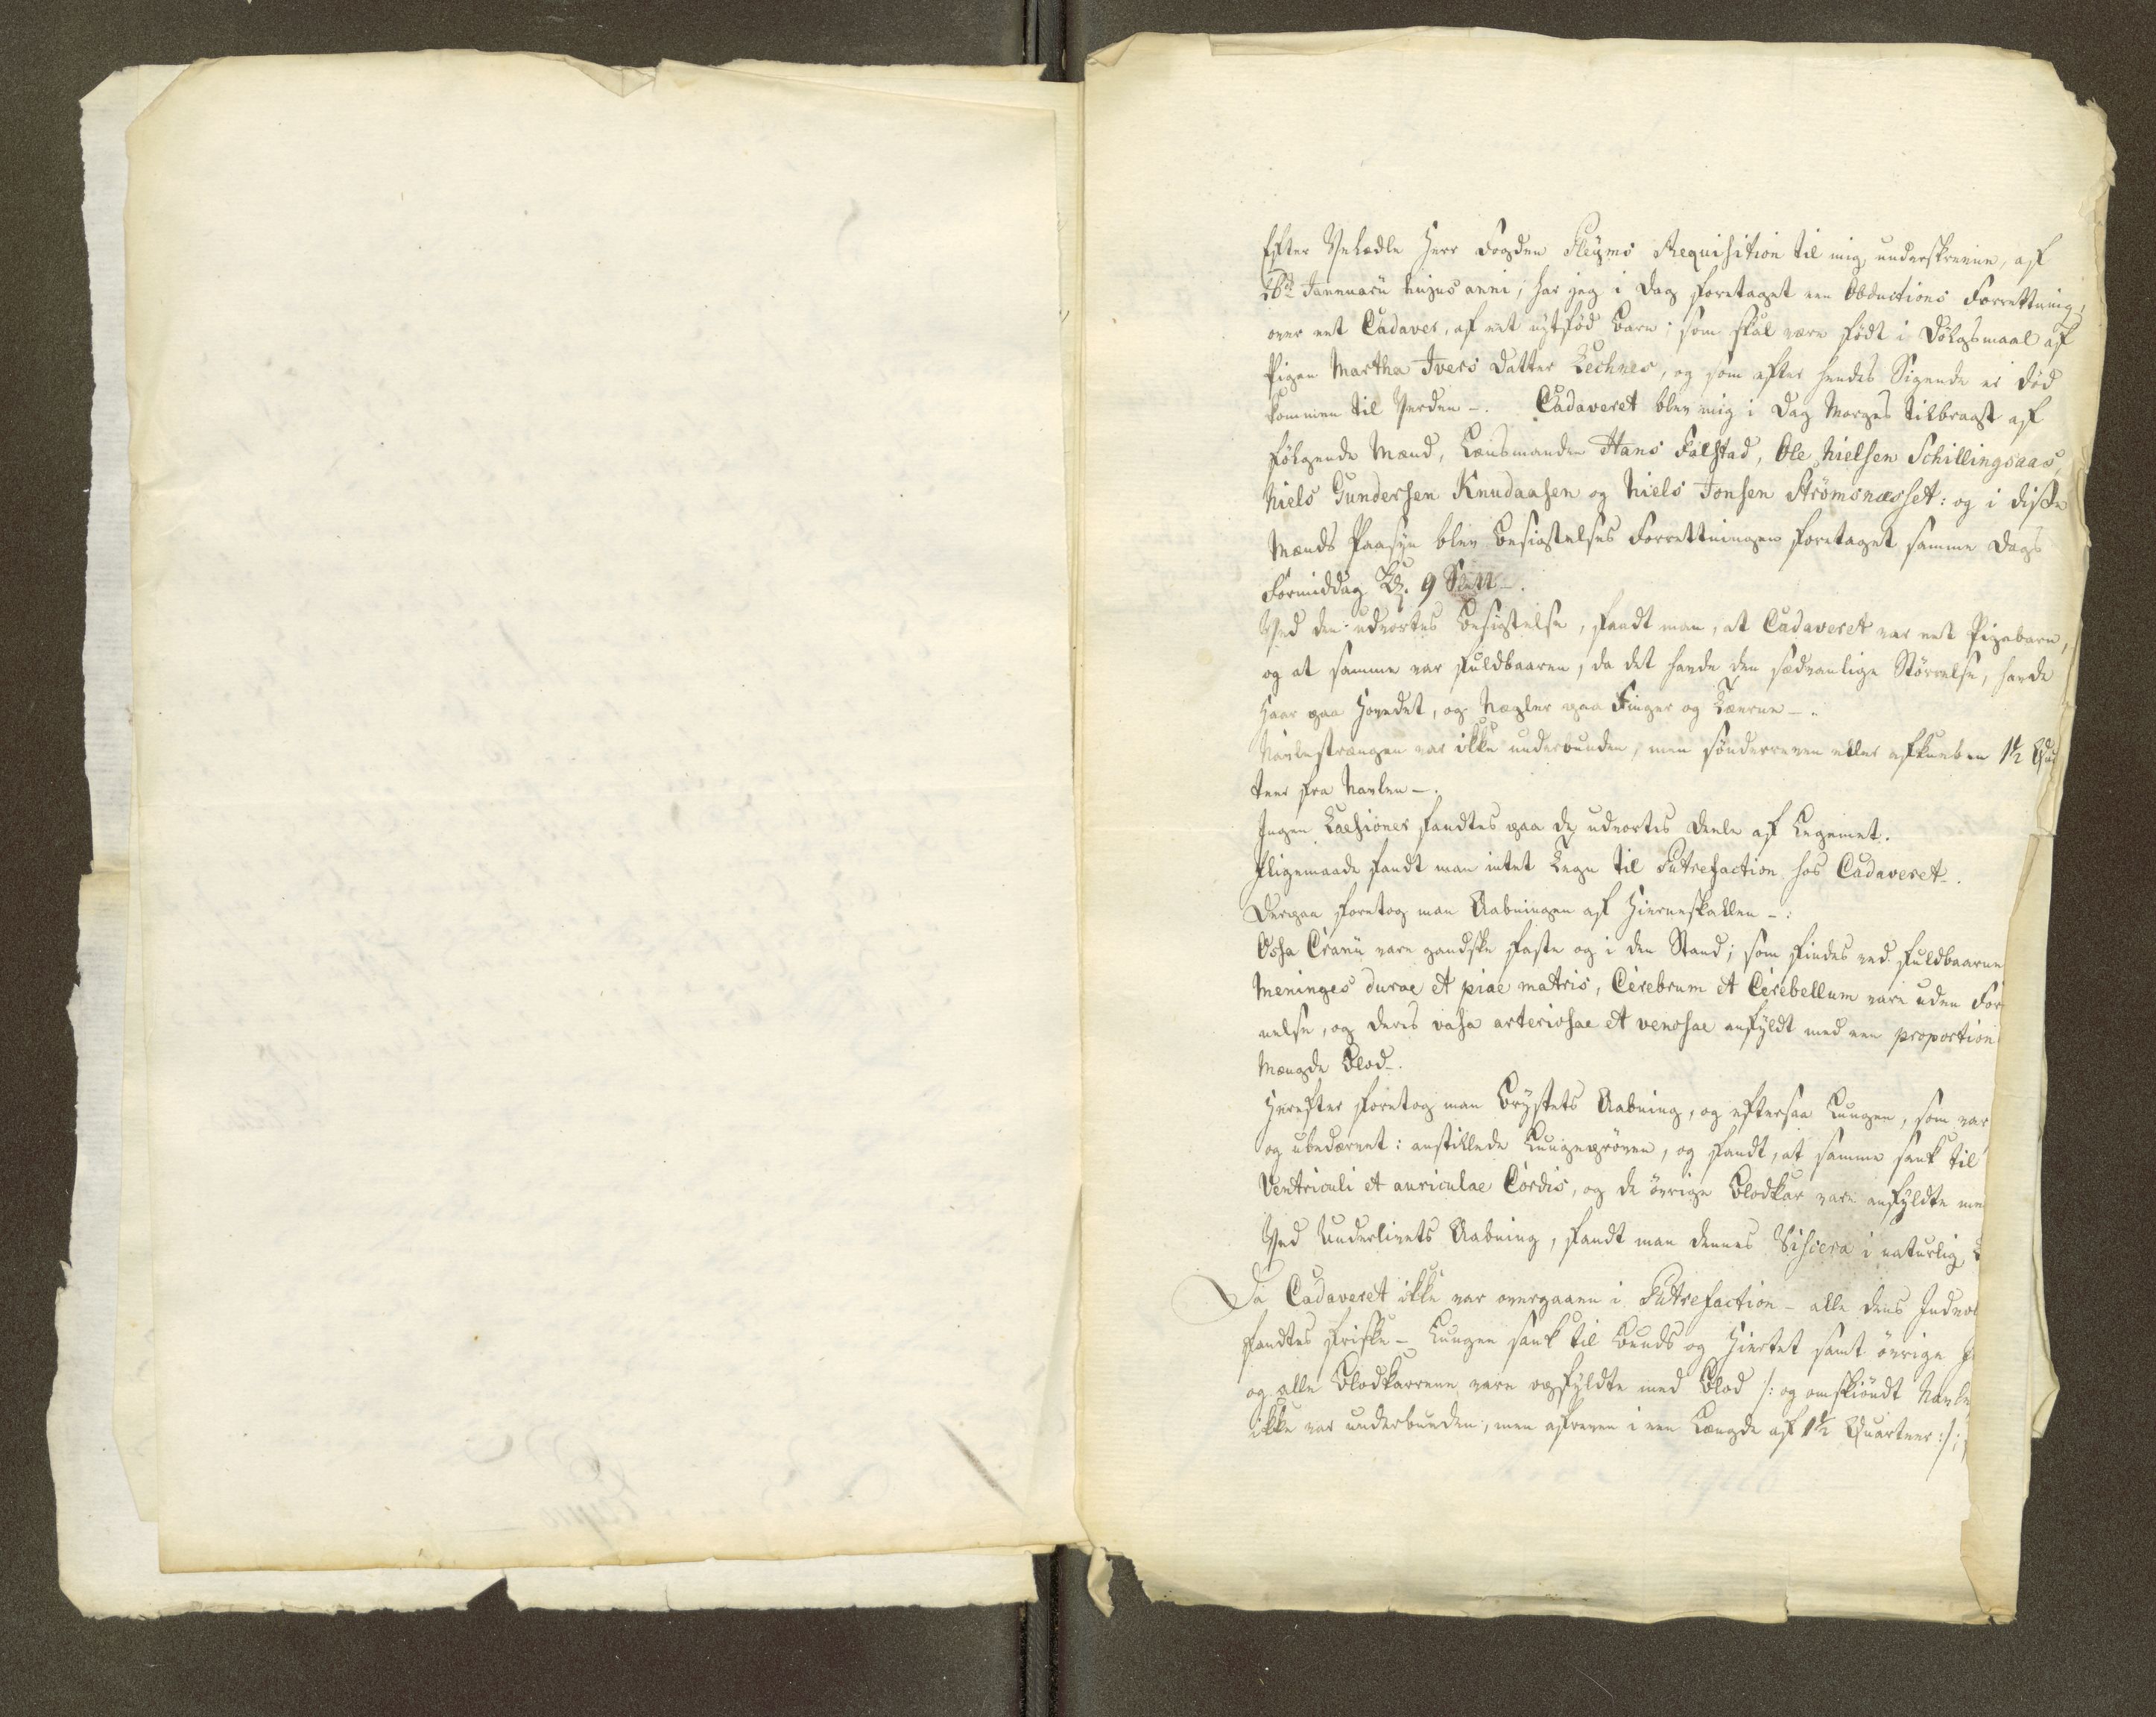 Efter Velædle Herr Fogden Pleyms Requisition til mig underskreven, af
26de Januarii hujus anni, har jeg i Dag foretaget een Obductions Forrettning,
over eet Cadaver, af eet nytfød Barn; som skal være født i Dølgsmaal af
Pigen Martha Ivers Datter Lechnes, og som efter hendes Sigende er død
kommen til Verden -. Cadaveret blev mig i Dag Morges tilbragt af
følgende Mænd, Lensmanden Hans Falstad, Ole Nielsen Schillingsaas,
Niels Gundersen Knudaasen og Niels Jonsen Strømsnæsset: og i disse
Mænds Paasyn blev Besigtelses Forrettningen foretaget samme Dags
Formiddag Kl. 9
Ved den udvortes Besigtelse, fandt man, at Cadaveret var eet Pigebarn,
og at samme var fuldbaaren, da det havde den sædvanlige Størrelse, havde
Haar paa Hovedet, og Negler paa Finger og Tæerne -.
Navlestrængen var ikke underbunden, men sønderreven eller afkneben 1½ Qvar
teer fra Navlen -.
Ingen Læsioner fandtes paa de udvortes Deele af Legemet.
Iligemaade fandt man intet Tegn til Putrefaction hos Cadaveret -.
Derpaa foretog man Aabningen af Hierneskallen -:
Ossa Cranii vare gandske faste og i den Stand; som findes ved fuldbaarne
Meninges durae et piae matris, Cerebrum et Cerebellum vare uden For
nelse, og deres vasa arteriosae et venosae anfyldt med een proportion
Mængde Blod -.
Herefter foretog man Brystets Aabning, og eftersaa Lungen, som var
og ubedærvet: anstillede Lungeprøven, og fandt, at samme sank til
Ventriculi et auriculae Cordis, og de øvrige Blodkar vare anfyldte me
Ved Underlivets Aabning, fandt man dennes Viscera i naturlig
Da Cadaveret ikke var overgaaen i Putrefaction - alle dens Indvol
fandtes friske - Lungen sank til Bunds og Hiertet samt øvrige
og alle Blodkarrene vare opfyldte med Blod /: og omskiøndt Navle
ikke var underbunden, men afreven i een Længde af 1½ Qvarteer :/;